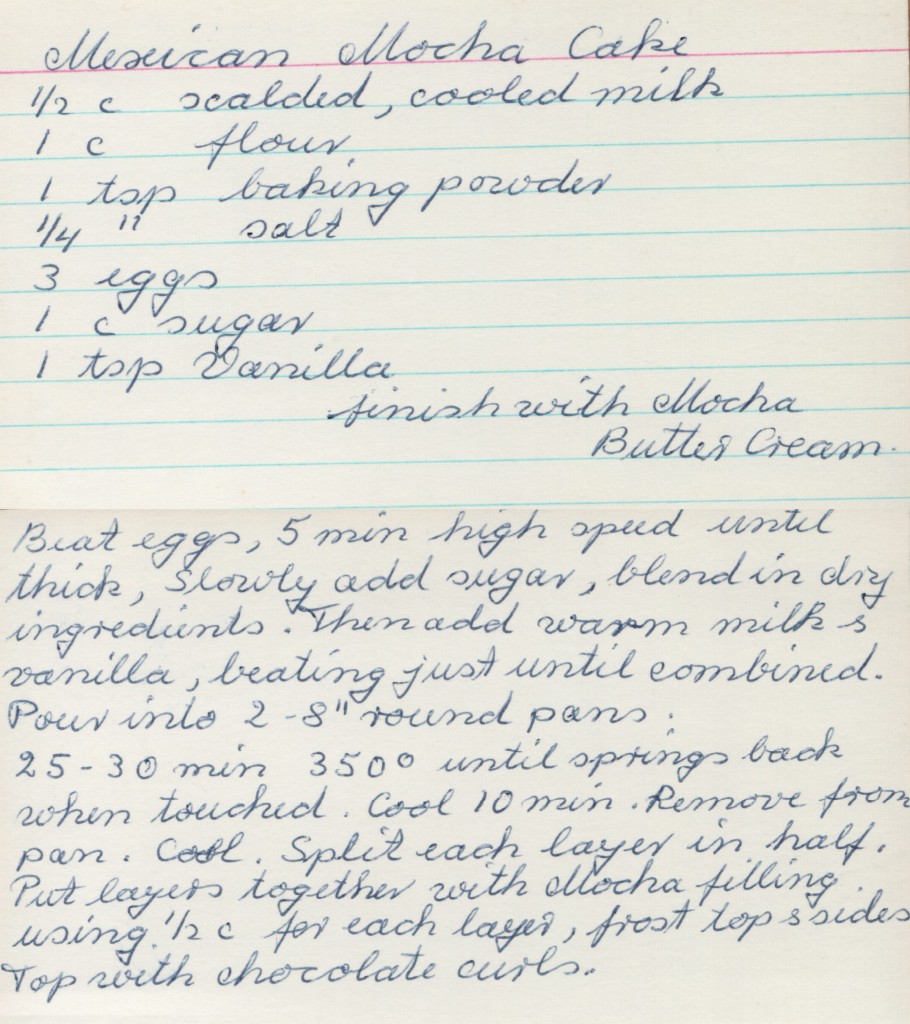 Mexican Mocha Cake
1/2 c scalded, cooled milk
1 c flour
1 tsp baking powder
1/4 " salt
3 eggs
1 c sugar
1 tsp Vanilla
finish with Mocha
Butter Cream.
Beat eggs, 5 min high speed until
thick, Slowly add sugar, blend in dry
ingredients. Then add warm milk &
vanilla, beating just until combined.
Pour into 2 - 8" round pans.
25 - 30 min 350° until springs back
when touched. Cool 10 min. Remove from
pan. Cool. Split each layer in half.
Put layers together with Mocha filling.
using 1/2 c for each layer, frost top & sides
Top with chocolate curls.